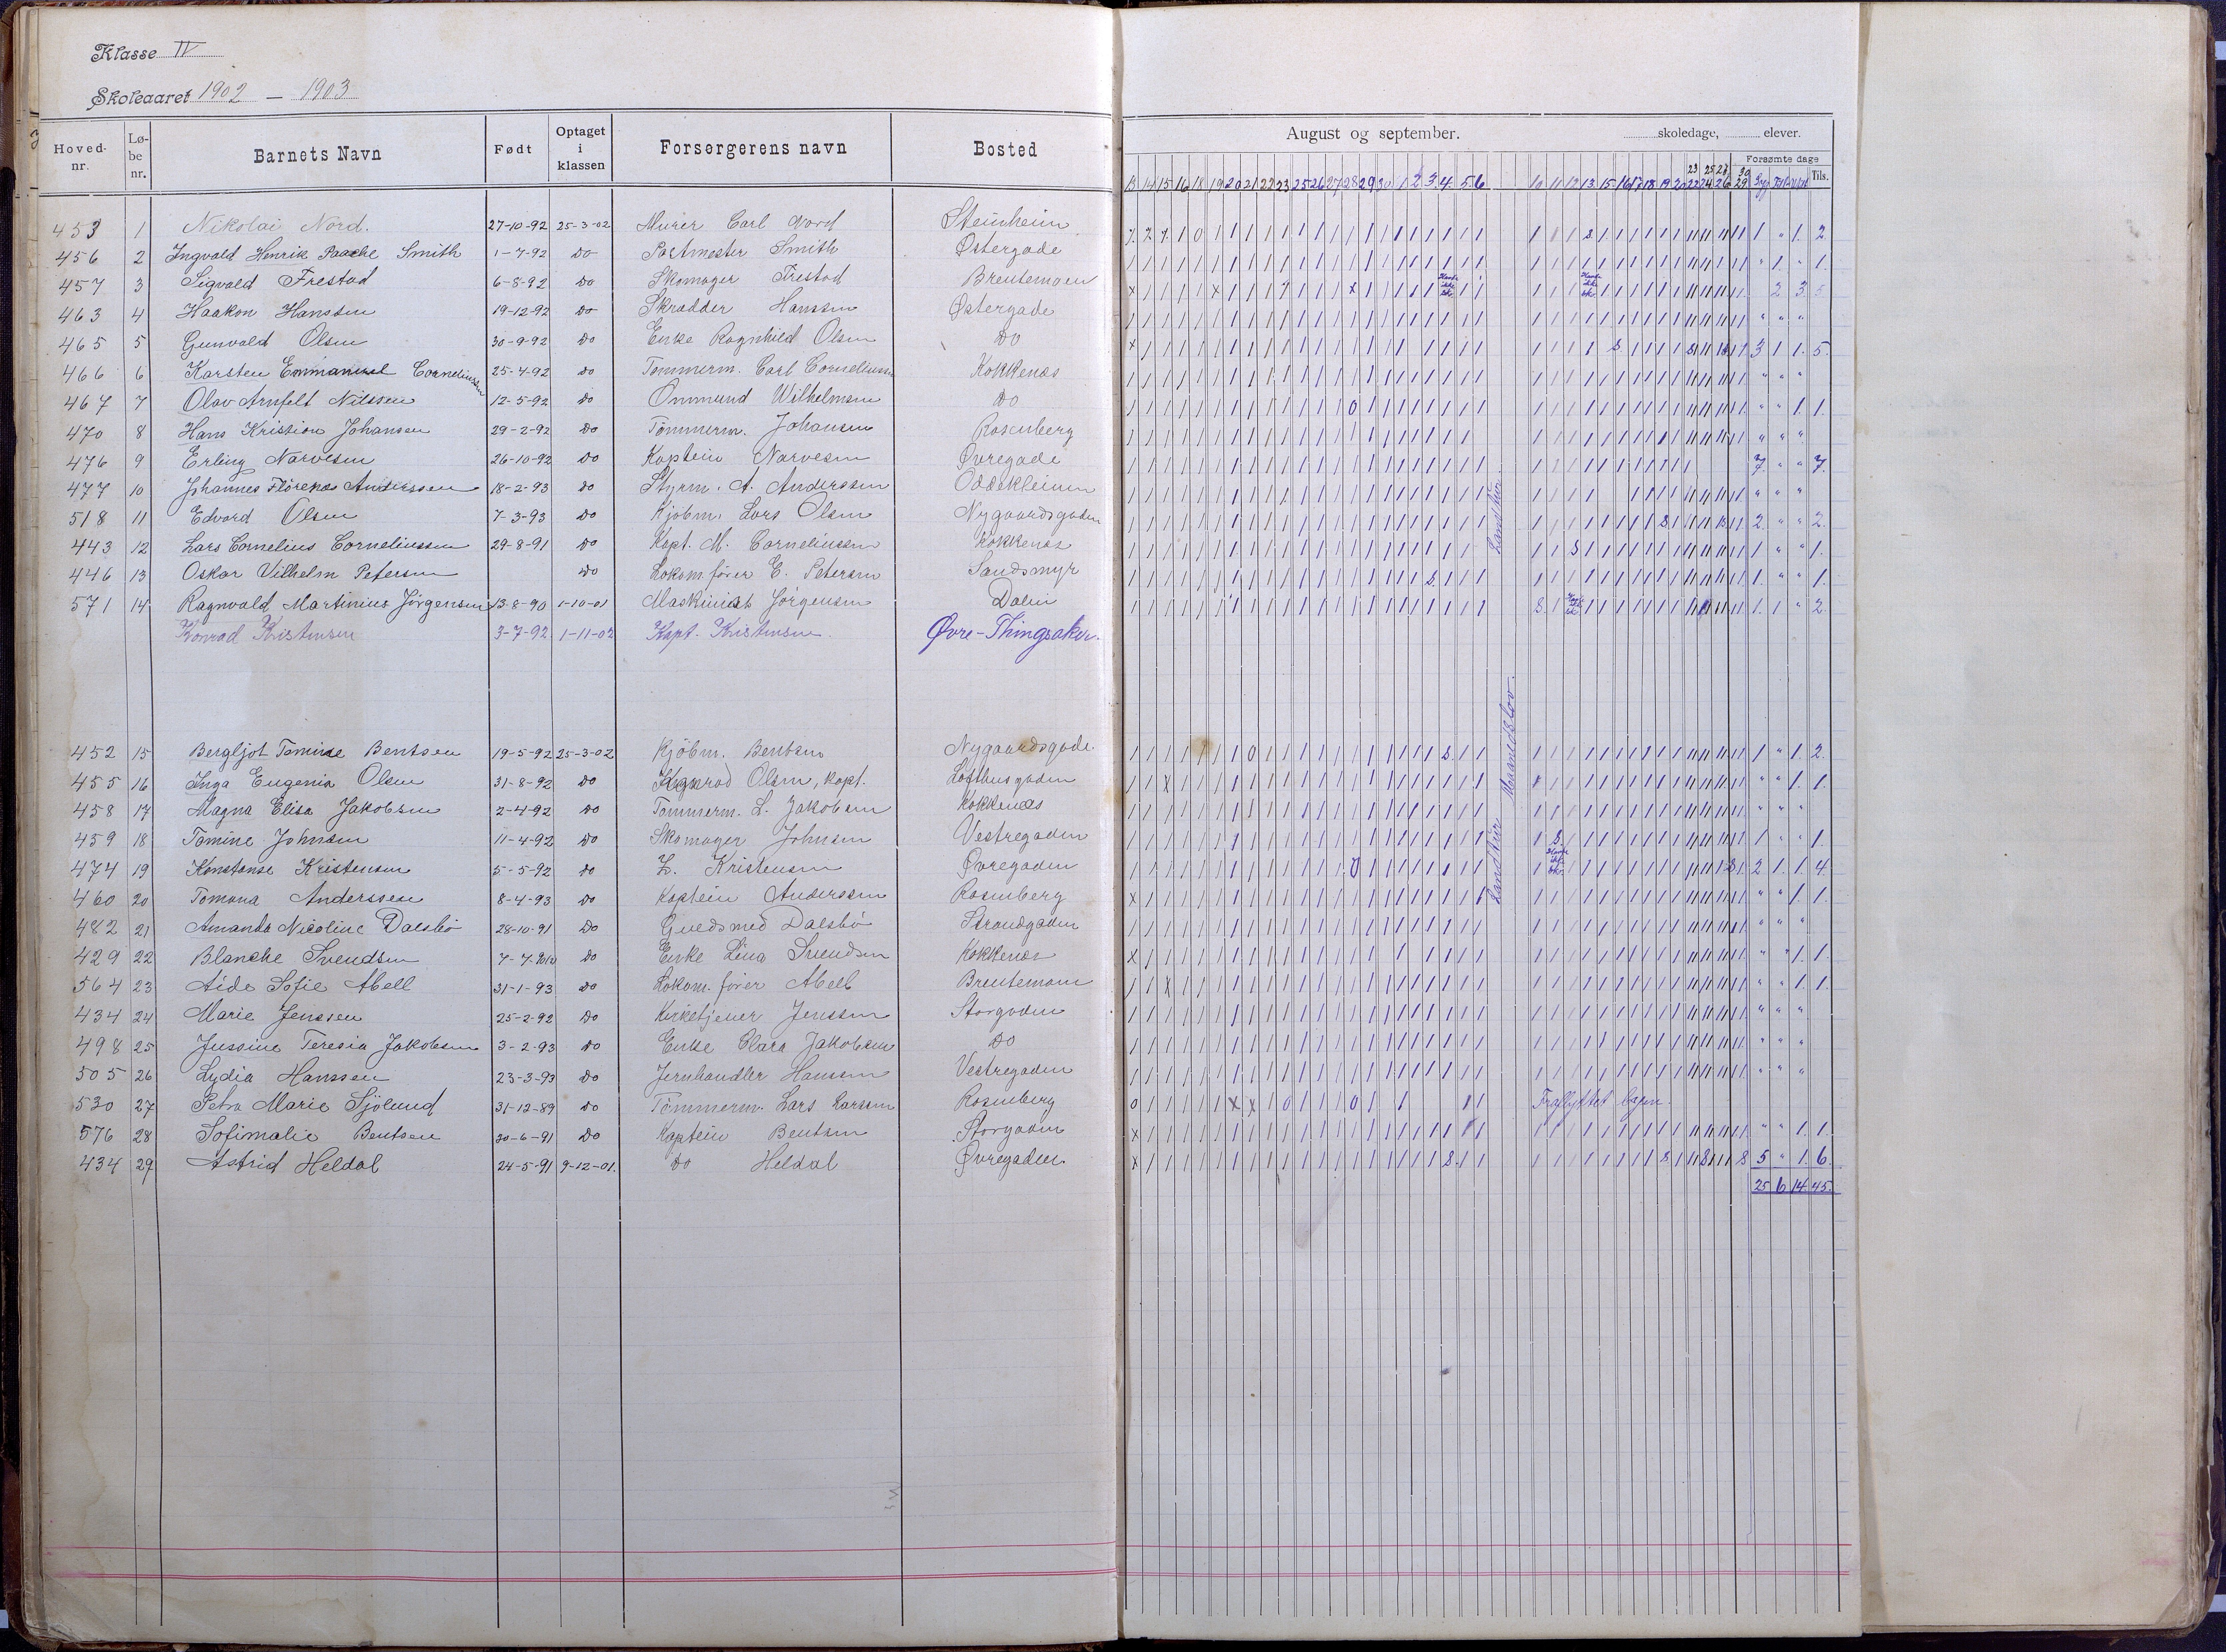 Klasse IV
Skoleaaret 1902 – 1903
Hoved-nr. Lø-be nr. Barnets Navn Født Optaget i klassen Forsørgerens navn Bosted
August og september. skoledage, elever.
Forsømte dage
23 25 27 30
13 14 15 16 18 19 20 21 22 23 25 26 27 28 29 30 1 2 3 4 5 6 10 11 12 13 15 16 17 18 19 20 22 24 26 29 Tils.
453 1 Nikolai Nord. 27-10-92 25-3-02 Murer Carl Nord Steinheim 1 " 1. 2.
456 2 Ingvald Henrik Paache Smith 1-7-92 Do Postmester Smith Østergade " 1. " 1.
457 3 Sigvald Frestad 6-8-92 Do Skomager Frestad Brentemoen 2 3 5
463 4 Haakon Hanssen 19-12-92 Do Skrædder Hanssen Østergade " " "
465 5 Gunvald Olsen 30-9-92 Do Enke Ragnhild Olsen Do 3 1 1. 5.
466 6 Karsten Emmanuel Corneliussen 25-4-92 Do Tømmerm. Carl Corneliussen Kokkenæs " " "
467 7 Olav Arnfelt Nilssen 12-5-92 Do Ommund Wilhelmsen Do " " 1. 1.
470 8 Hans Kristian Johansen 29-2-92 Do Tømmerm. Johansen Rosenberg " " "
476 9 Erling Narvesen 26-10-92 Do Kaptein Narvesen Øvregade 7 " " 7.
477 10 Johannes Flörenæs Anderssen 18-2-93 Do Styrm. A. Anderssen Oddekleiven " " "
518 11 Edvard Olsen 7-3-93 Do Kjøbm. Lars Olsen Nygaardsgaden 2. " " 2.
443 12 Lars Cornelius Corneliussen 29-8-91 Do Kapt. M. Corneliussen Kokkenæs 1 " " 1.
446 13 Oskar Vilhelm Petersen Do Lokom.fører E. Petersen Sandsmyr 1. " " 1.
571 14 Ragnvald Martinius Jörgensen 13-8-90 1-10-01 Maskinist Jørgensen Dalen 1. 1 " 2.
Konrad Kristensen 3-7-92 1-11-02 Kapt. Kristensen. Øvre-Thingsaker.
Landtur
Maanedslov.
452 15 Bergljot Tomine Bentsen 19-5-92 25-3-02 Kjöbm. Bentsen Nygaardsgade 1 " 1. 2.
455 16 Inga Eugenia Olsen 31-8-92 Do Konrad Olsen, kapt. Lofthusgaden " " 1. 1.
458 17 Magna Elisa Jakobsen 2-4-92 Do Tømmerm. L. Jakobsen Kokkenæs " " "
459 18 Tomine Johnsen 11-4-92 Do Skomager Johnsen Vestregaden 1 " " 1.
474 19 Konstanse Kristensen 5-5-92 Do L. Kristensen Øvregaden 2 1. 1. 4
460 20 Tomana Anderssen 8-4-93 Do Kaptein Anderssen Rosenberg " " 1. 1.
Landtur
482 21 Amanda Nicoline Dalsbö 28-10-91 Do Guldsmed Dalsbö Strandgaden " " "
429 22 Blanche Svendsen Do Enke Lina Svendsen Kokkenæs " " 1. 1.
564 23 Aide Sofie Abell 31-1-93 Do Lokom.fører Abell Brentemoen " " 1. 1.
434 24 Marie Jenssen 25-2-92 Do Kirketjener Jenssen Storgaden " " "
498 25 Jussine Teresia Jakobsen 3-2-93 Do Enke Clara Jakobsen Do " " "
505 26 Lydia Hanssen 23-3-93 Do Jernhandler Hansen Vestregaden " " "
530 27 Petra Marie Sjölund 31-12-89 Do Tömmerm. Lars Larsen Rosenberg Fraflyttet byen.
576 28 Sofimalie Bentsen 30-6-91 Do Kaptein Bentsen Storgaden " " 1. 1.
434 29 Astrid Heldal 24-5-91 9-12-01. Do Heldal Øvregaden 5 " 1. 6.
25 6 14 45.